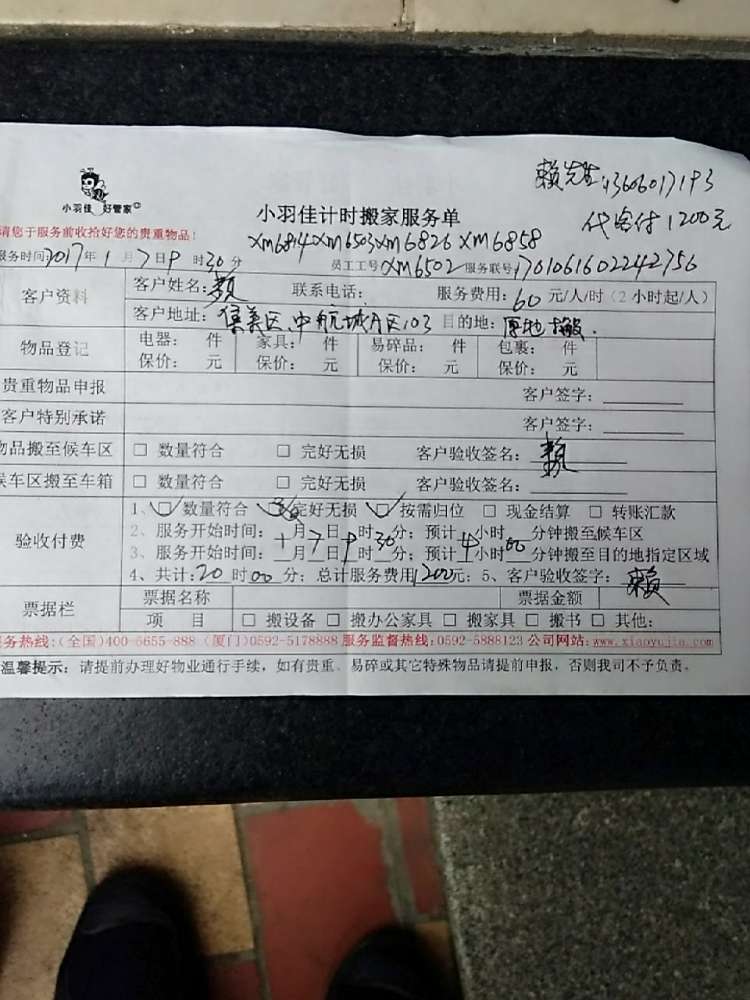 赖先生13606017193
代客付1200元
小羽佳 好管家
小羽佳计时搬家服务单
请您于服务前收拾好您的贵重物品!
XM6814XM6503XM6826 XM6858
服务时间:2017年1月7日9时30分 员工工号XM6502服务联号:1701061602242756
客户资料 客户姓名:赖 联系电话: 服务费用:60元/人/时(2小时起/人)
客户地址:集美区,中航城A区103 目的地:原地搬.
物品登记 电器: 件 家具: 件 易碎品: 件 包裹: 件
保价: 元 保价: 元 保价: 元 保价: 元
贵重物品申报 客户签字:
客户特别承诺 客户签字:
物品搬至候车区 □ 数量符合 □ 完好无损 客户验收签名:赖
候车区搬至车箱 □ 数量符合 □ 完好无损 客户验收签名:
验收付费 1、☑数量符合 ☑完好无损 ☑按需归位 □ 现金结算 □ 转账汇款
2、服务开始时间: 1月7日9时30分; 预计4小时00分钟搬至候车区
3、服务开始时间: 月 日 时 分; 预计 小时 分钟搬至目的地指定区域
4、共计:20时00分; 总计服务费用1200元; 5、客户验收签字:赖
票据栏 票据名称 票据金额
项 目 □ 搬设备 □ 搬办公家具 □ 搬家具 □ 搬书 □ 其他:
服务热线:(全国)400-6655-888 (厦门)0592-5178888 服务监督热线:0592-5888123 公司网站:www.xiaoyujia.com
温馨提示: 请提前办理好物业通行手续, 如有贵重、易碎或其它特殊物品请提前申报, 否则我司不予负责。